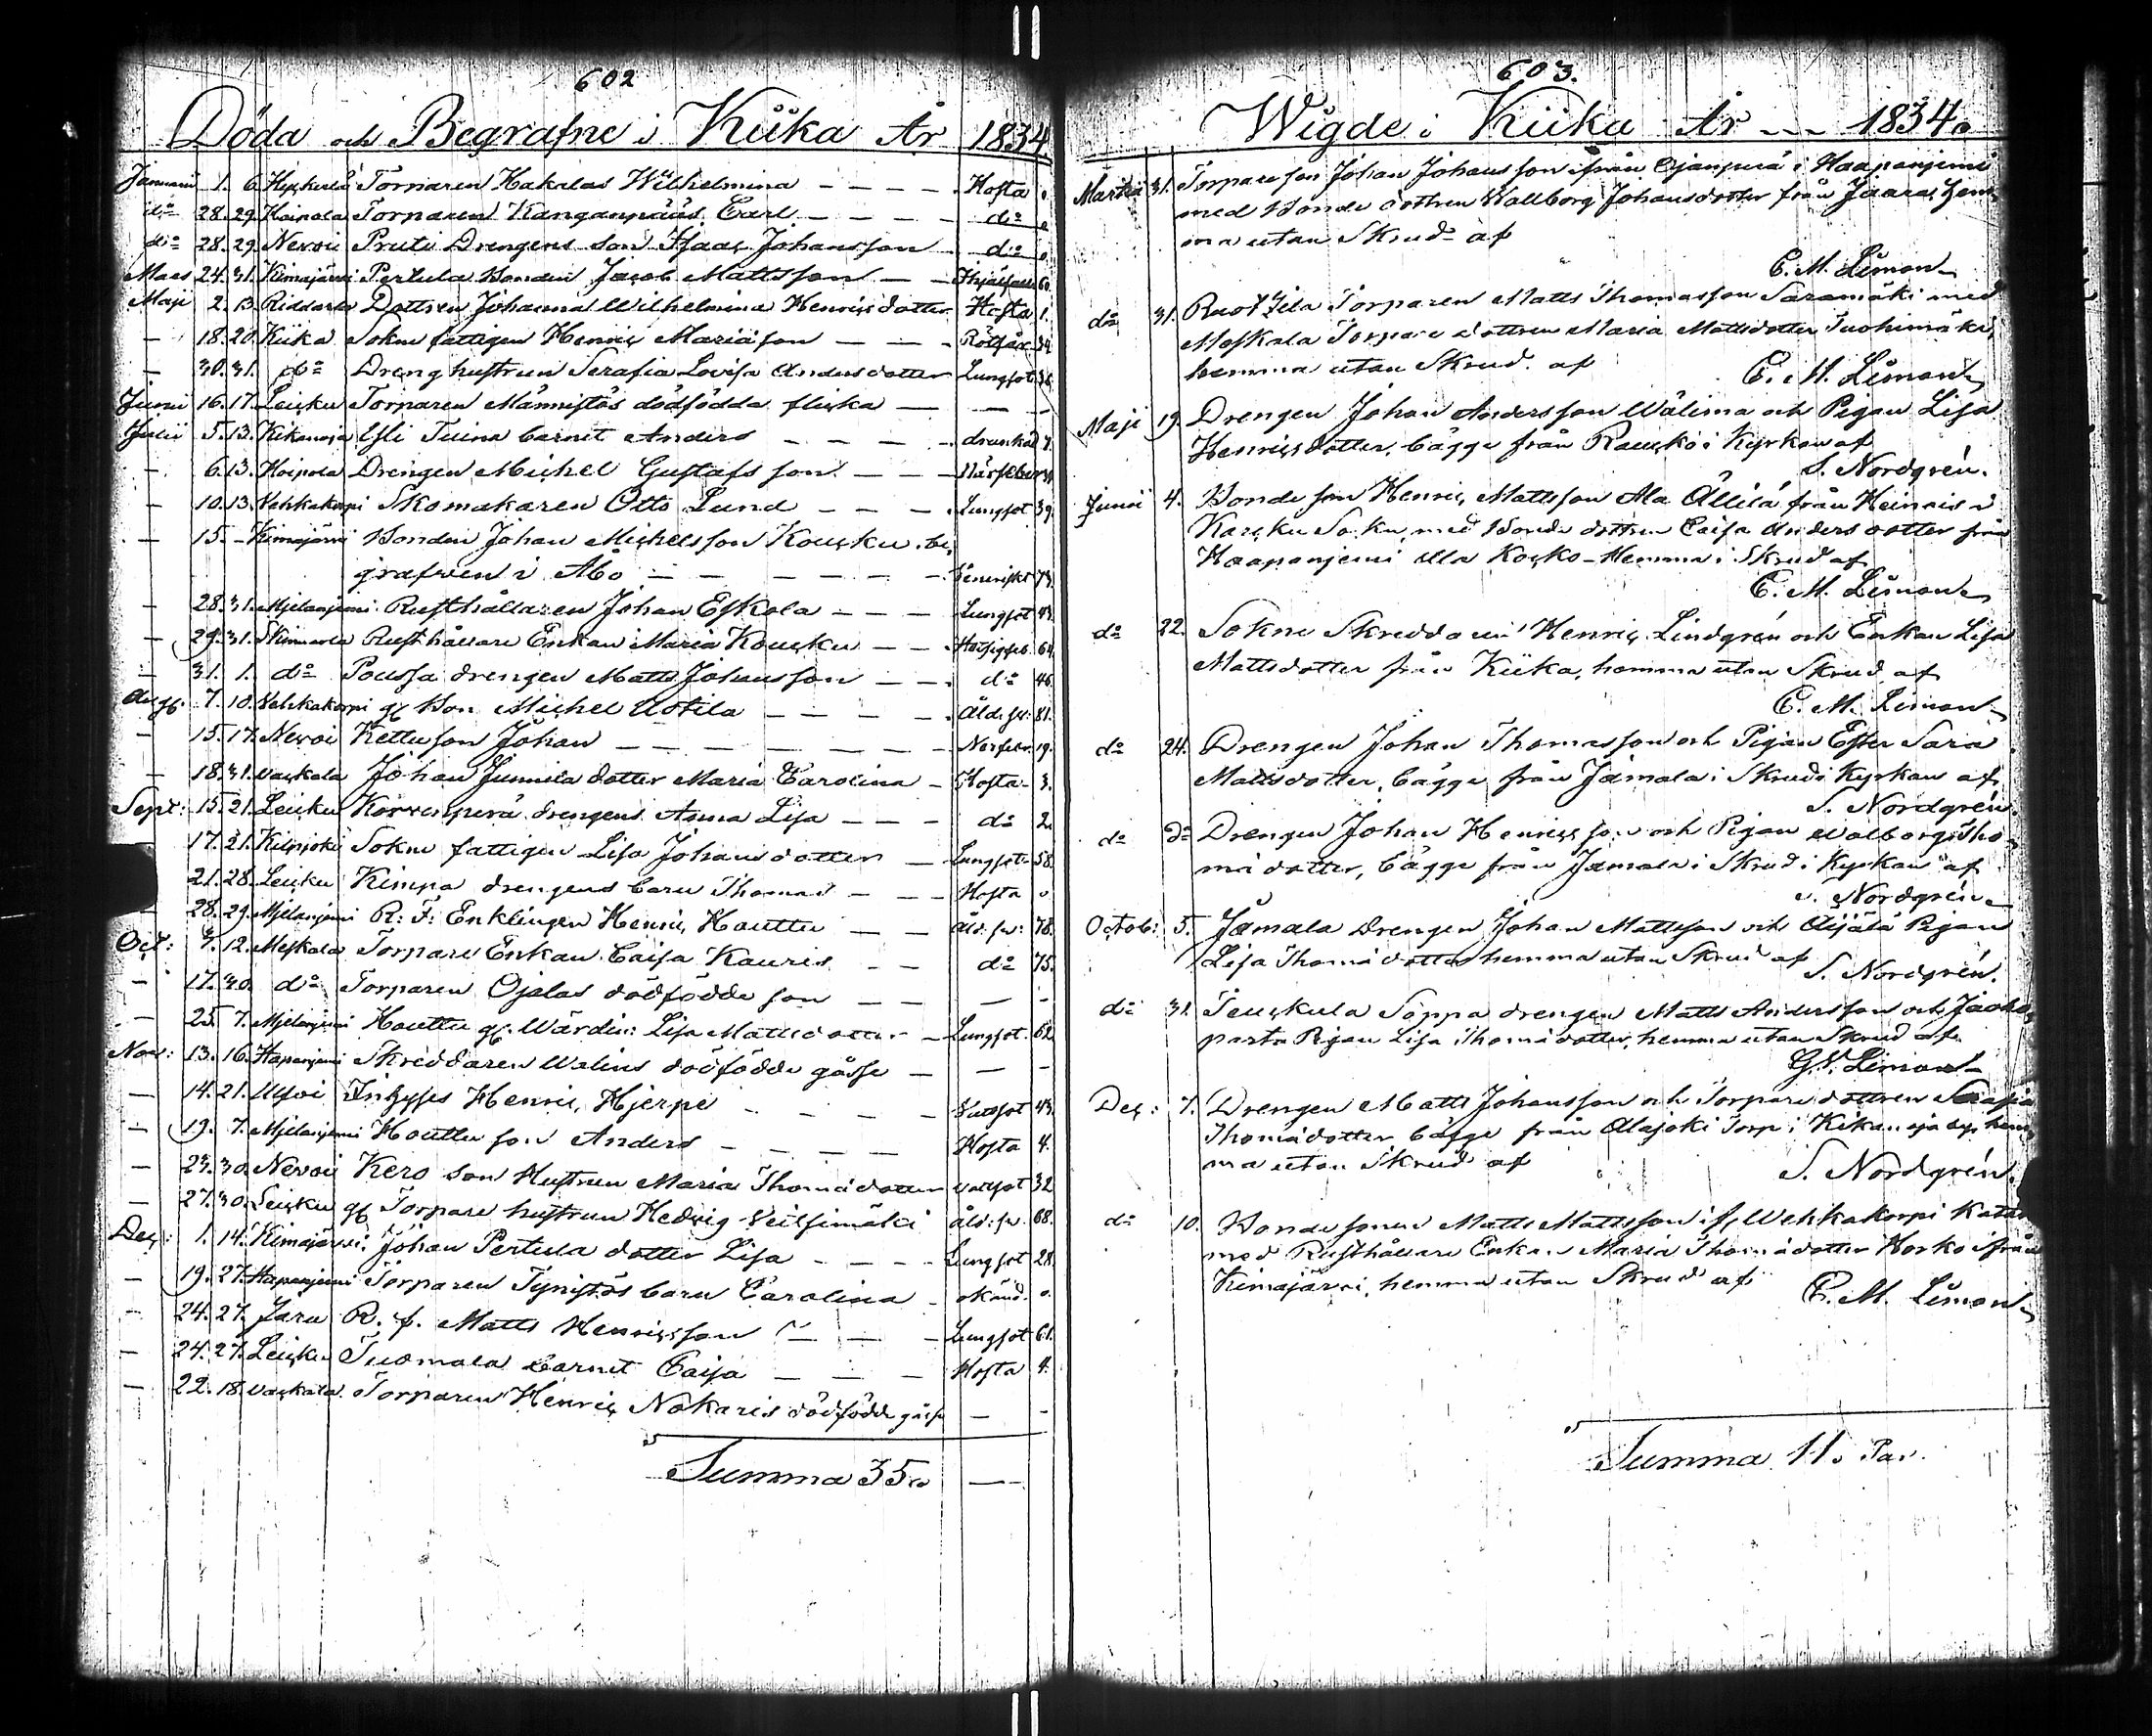 602
Döda och Begrafne i Kiika År 1834
Januarii 1. 6. Torparen Hakalas Wilhelmina — — — Hosta 0
do 28. 29. Koipola Torparen Kanganpääs Carl — — — do 0
do 28. 29. Nevoii Pruti Drengens son Isaac Johansson do 0
Mars 24. 31. Kiimajärvi Pertula Bonden Jacob Mattsson — — 60
Maji 2. 13. Riddarla Dottren Johanna Wilhelmina Henricsdotter Hosta 1.
— 18. 20. Kiika Sokne fattigen Henric Mariæson — — Rötfäb 34
— 30. 31. do Dreng hustrun Serafia Lovisa Andersdotter Lungsot 36
Junii 16. 17. Leicku Torparen Männistös dödfödda flicka — — —
Julii 5. 13. Kikanoja Yli Tuina barnet Anders — — — drunknad 7.
— 6. 13. Koipola Drengen Michel Gustafsson — —
— 10. 13. Vehkakorpi Skomakaren Otto Lund — — — Lungsot 39.
— 15. — Kiimajärvi Bonden Johan Michelsson Koucku be
grafven i Åbo — — — — — — 73.
— 28. 31. Mjelanjemi Rusthållaren Johan Eskola — — — Lungsot 43.
— 29. 31. Rusthållare Enkan Maria Koucku — — 64.
— 31. 1. do Poussa drengen Matts Johansson — — do 46.
Aug. 7. 10. Vehkakorpi gl. Bon. Michel Uotila — — — — Åld. sv: 81.
— 15. 17. Nevoi Kettu son Johan — — — — — — Nerfeb. 19.
— 18. 31. Vackala Johan Junnila dotter Maria Carolina — Hosta 3.
Sept: 15. 21. Leicku Korvenperä drengens Anna Lisa — — — do 2.
17. 21. Kilpijoki Sokne fattigen Lisa Johansdotter — Lungsot 58.
21. 28. Leicku Kimpa drengens barn Thomas — — Hosta 0
— 28. 29. Mjelanjemi R: F: Enklingen Henric Houttu — — åld. sv: 78.
Oct: 7. 12. Meskala Torpare Enkan Caisa Kauris — — do 75.
— 17. 20. do Torparen Ojalas dödfödde son — — — —
— 25. 7. Mjelanjemi Houttu gl. Wärdin: Lisa Mattsdotter — Lungsot. 62.
Nov: 13. 16. Hapanjemi Skreddaren Walins dödfödde gosse — — —
— 14. 21. Henric Hjerpe — — — — 43.
— 19. 7. Mjelanjemi Houttu son Anders — — — — Hosta 4.
— 23. 30. Nevoii Kero son Hustrun Maria Thomädotter 32.
— 27. 30. Leicku gl. Torpare hustrun Hedvig Veitsimäki åld: sv. 68.
Dec: 1. 14. Kiimajärvi Johan Pertula dotter Lisa — — — — Lungsot 28.
— 19. 27. Hapanjemi Torparen Tynistös barn Carolina — okänd. 0.
— 24. 27. Jaru R. f. Matts Henricsson — — — Lungsot 61.
— 24. 27. Leicku Tuomala barnet Caisa — — — Hosta 4.
— 22. 18. Vackala Torparen Henric Nokaris dödfödde gosse — —
Summa 35. —
603.
Wigde i Kiika År — — 1834.
Martii 31. Torpare son Johan Johansson ifrån Ojanperä i Haapanjemi
med Bonde dottren Wallborg Johansdotter från Jaara, hem
ma utan Skrud af
C. M. Limon
do 31. Torparen Matts Thomasson Saramäki med
Meskala Torpare dottren Maria Mattsdotter Tuohimäki,
hemma utan Skrud. af
C. M. Limon
Maji 19. Drengen Johan Andersson Wälima och Pigan Lisa
Henricsdotter, bägge från Raucko i Kyrkan af
S. Nordgrén.
Junii 4. Bonde son Henric Mattsson Ala från Heinois i
Karcku Sokn, med Bonde dottren Caisa Andersdotter från
Haapanjemi Ala Kocko — Hemma i Skrud af
C. M. Limon
do 22. Sokne Skreddaren Henric Lindgrén och Enkan Lisa
Mattsdotter från Kiika, hemma utan Skrud af
C. M. Limon
do 24. Drengen Johan Thomasson och Pigan Ester Sara
Mattsdotter, bägge från Jämala i Skrud i Kyrkan af
S. Nordgrén.
do do Drengen Johan Henricsson och Pigan Walborg Tho
mä dotter, bägge från Jämala i Skrud i Kyrkan af
S. Nordgrén
Octob: 5. Jämala Drengen Johan Mattsson och Äijälä Pigan
Lisa Thomädotter hemma utan Skrud af
S. Nordgrén.
do 31. Söppa drengen Matts Andersson och
Pigan Lisa Thomädotter, hemma utan Skrud af
Limon
Dec: 7. Drengen Matts Johansson och Torpare dottren Serafia
Thomädotter bägge från Alajoki Torp i Kikanoja by, hem
ma utan Skrud af
S. Nordgrén.
do 10. Bonde sonen Matts Mattsson if. Wehkakorpi
med Rusthållare Enkan Maria Thomädotter Horko ifrån
Kimajärvi, hemma utan Skrud af
C. M. Limon
Summa 11. Par.